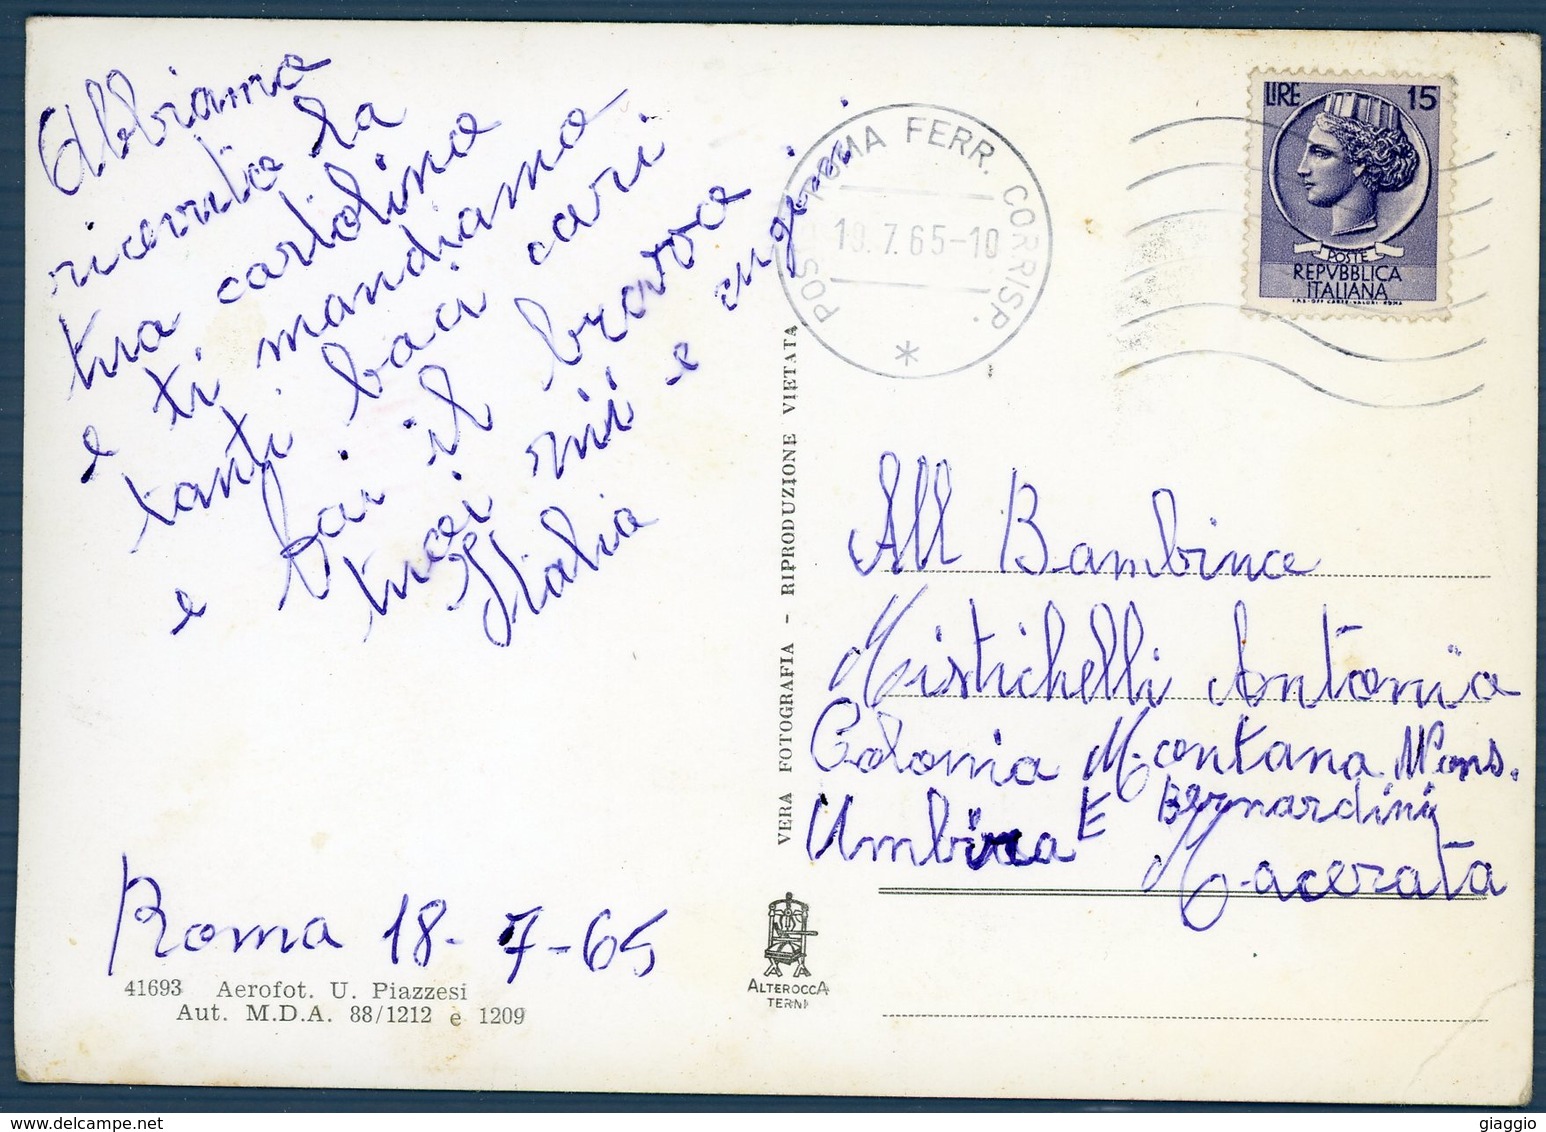 Abbiamo
ricevuto la
tua cartolina
e ti mandiamo
tanti baci cari
e fai il bravo
tuoi zii e cugini
Italia
Roma 18-7-65
41693 Aerofot. U. Piazzesi
Aut. M.D.A. 88/1212 e 1209
VERA FOTOGRAFIA - RIPRODUZIONE VIETATA
ALTEROCCA
TERNI
POSTE ROMA FERR. CORRISP.
19.7.65-10
LIRE 15
POSTE
REPVBBLICA
ITALIANA
IST. POL. STATO OFF. CARTE VALORI ROMA
All Bambino
Mistichelli Antonio
Colonia Montana Mons.
Umbria E Bernardini
Macerata
giaggio